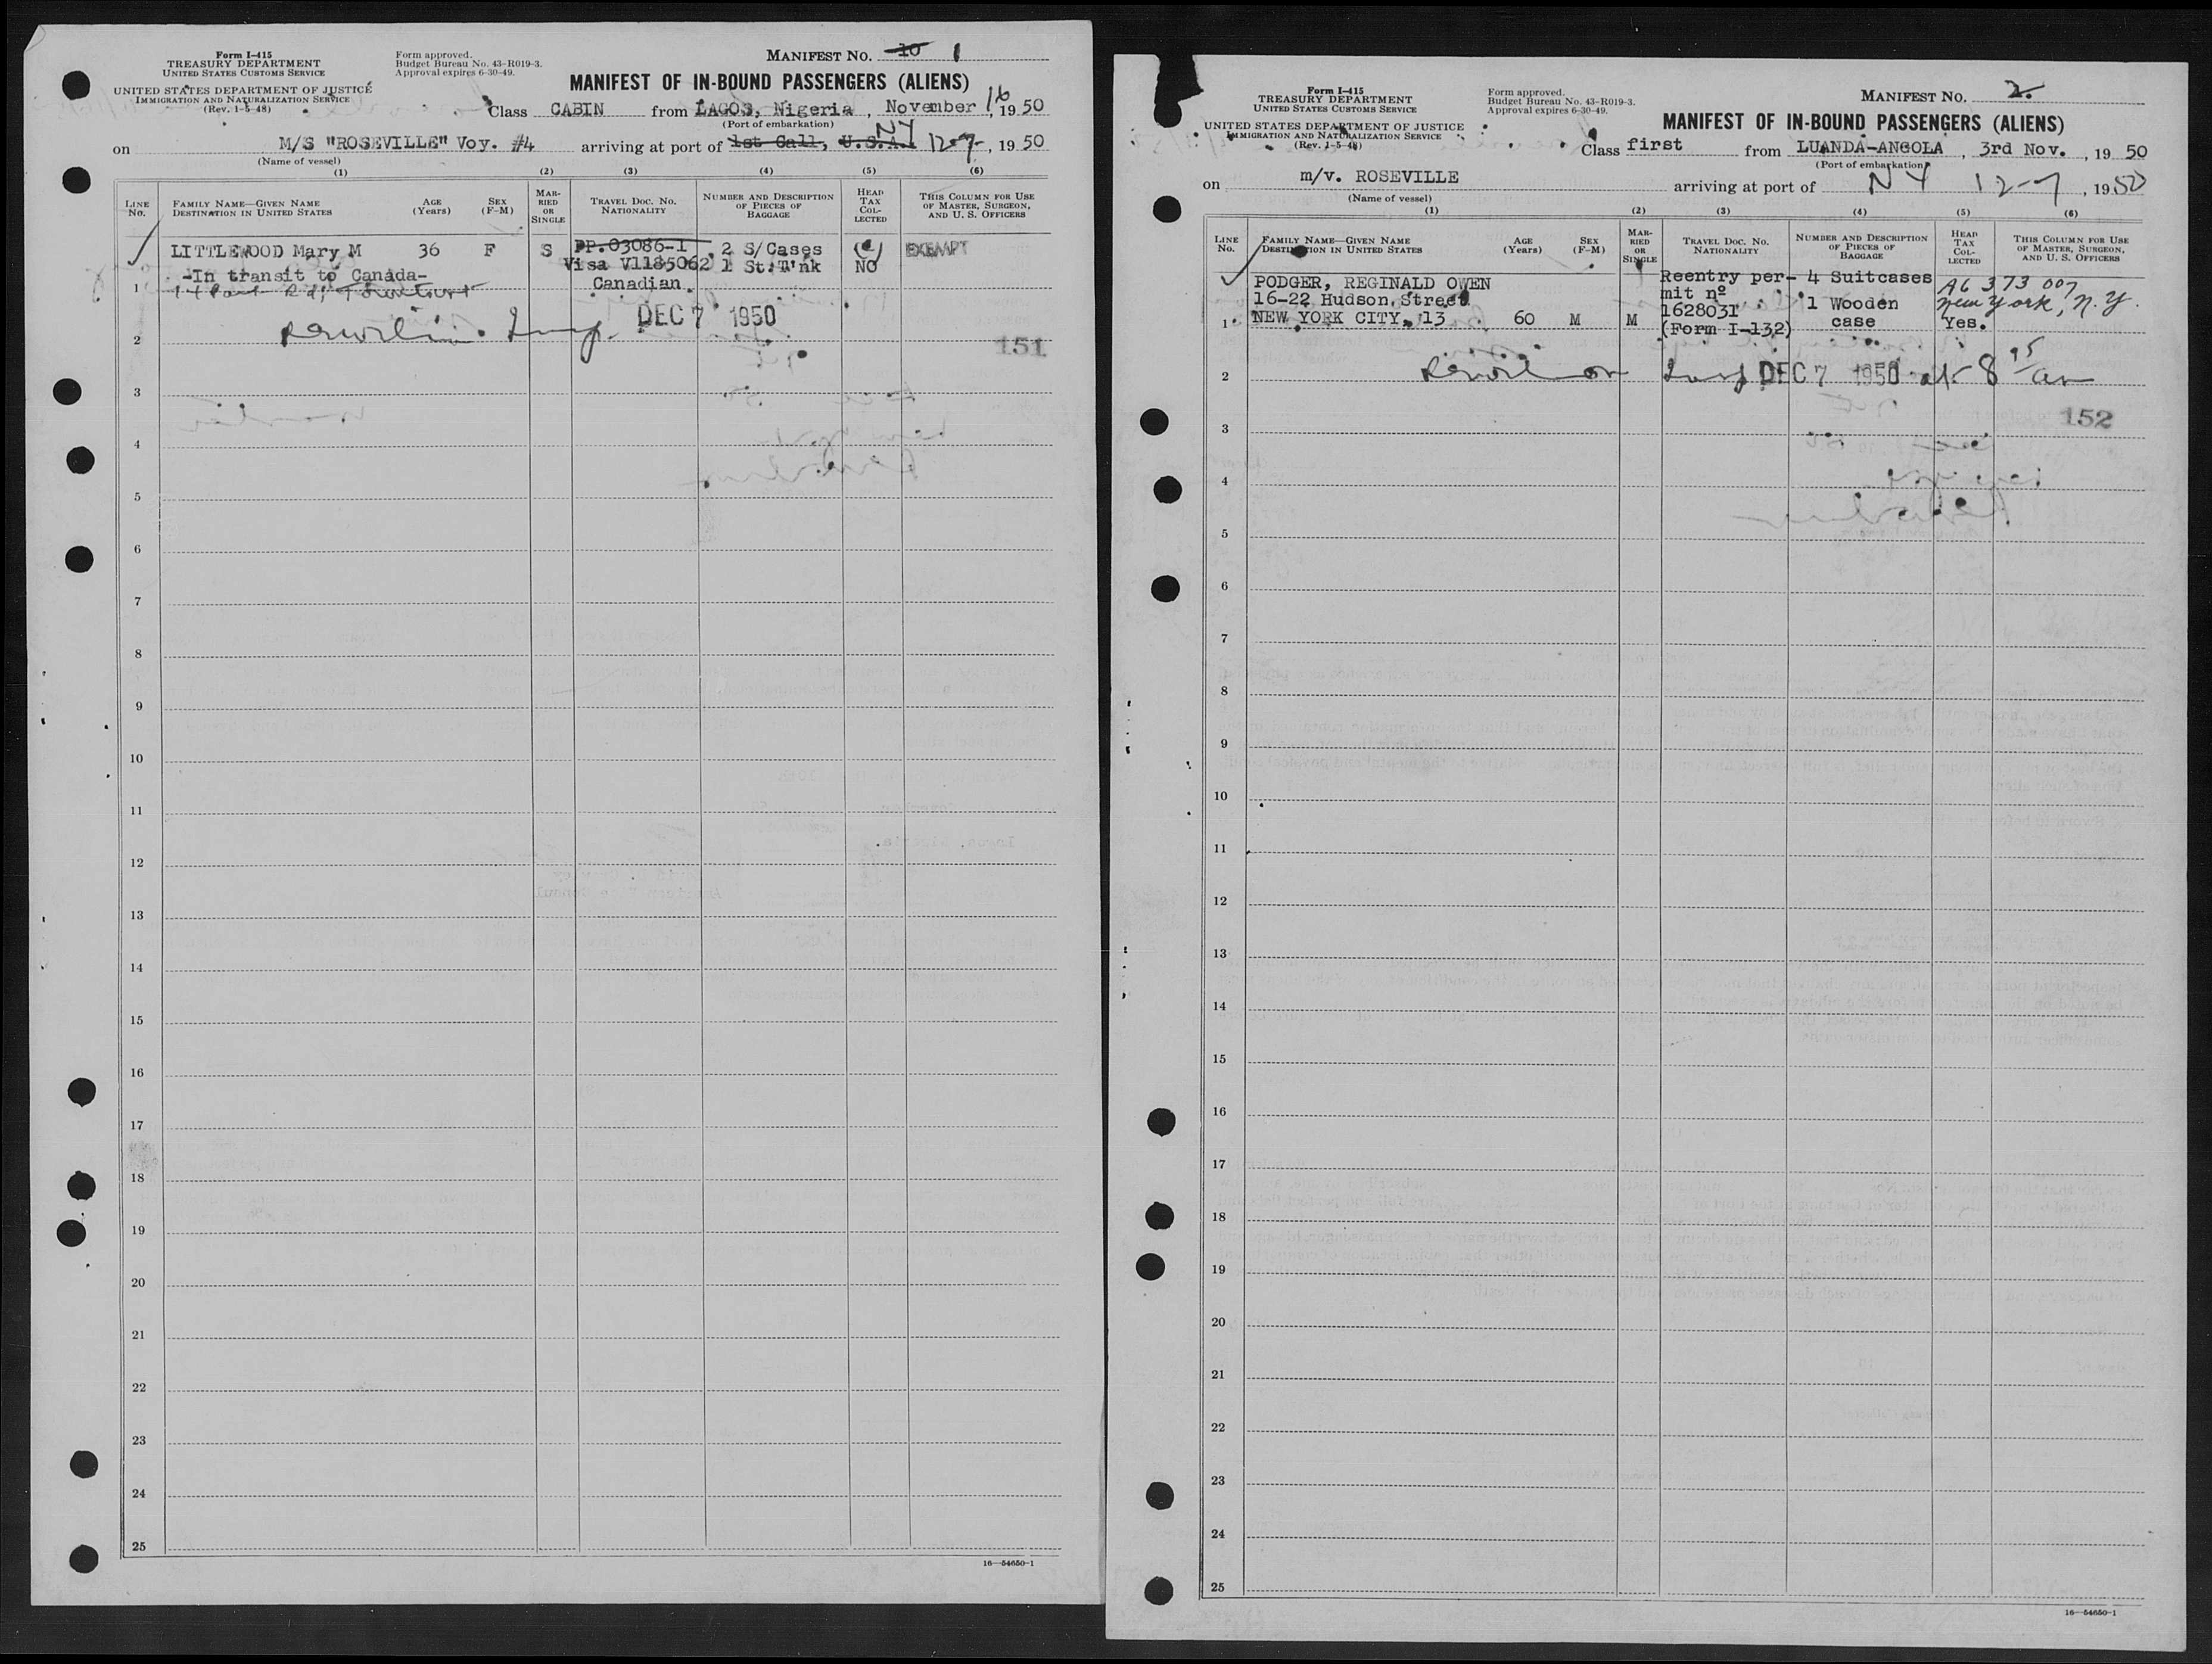 Form I-415
TREASURY DEPARTMENT
UNITED STATES CUSTOMS SERVICE
UNITED STATES DEPARTMENT OF JUSTICE
IMMIGRATION AND NATURALIZATION SERVICE
(Rev. 1-5-48)
Form approved.
Budget Bureau No. 43-R019-3.
Approval expires 6-30-49.
MANIFEST NO. 10 1
MANIFEST OF IN-BOUND PASSENGERS (ALIENS)
Class CABIN from LAGOS, Nigeria, November 16, 1950
(Port of embarkation)
on M/S "ROSEVILLE" Voy. #4 arriving at port of 1st Call, U.S.A. NY 12-7-, 1950
(Name of vessel)
(1) (2) (3) (4) (5) (6)
LINE No. FAMILY NAME—GIVEN NAME DESTINATION IN UNITED STATES AGE (Years) SEX (F-M) MARRIED OR SINGLE TRAVEL DOC. NO. NATIONALITY NUMBER AND DESCRIPTION OF PIECES OF BAGGAGE HEAD TAX COLLECTED THIS COLUMN FOR USE OF MASTER, SURGEON, AND U. S. OFFICERS
LITTLEWOOD Mary M 36 F S PP.03086-1 2 S/Cases EXEMPT
-In transit to Canada- Visa V1185062 1 St.T'nk NO
1 Canadian.
DEC 7 1950
2 151
3
4
5
6
7
8
9
10
11
12
13
14
15
16
17
18
19
20
21
22
23
24
25
16—54650-1
Form I-415
TREASURY DEPARTMENT
UNITED STATES CUSTOMS SERVICE
UNITED STATES DEPARTMENT OF JUSTICE
IMMIGRATION AND NATURALIZATION SERVICE
(Rev. 1-5-48)
Form approved.
Budget Bureau No. 43-R019-3.
Approval expires 6-30-49.
MANIFEST NO. 2.
MANIFEST OF IN-BOUND PASSENGERS (ALIENS)
Class first from LUANDA-ANGOLA, 3rd Nov., 1950
(Port of embarkation)
on m/v. ROSEVILLE arriving at port of NY 12-7, 1950
(Name of vessel)
(1) (2) (3) (4) (5) (6)
LINE No. FAMILY NAME—GIVEN NAME DESTINATION IN UNITED STATES AGE (Years) SEX (F-M) MARRIED OR SINGLE TRAVEL DOC. NO. NATIONALITY NUMBER AND DESCRIPTION OF PIECES OF BAGGAGE HEAD TAX COLLECTED THIS COLUMN FOR USE OF MASTER, SURGEON, AND U. S. OFFICERS
PODGER, REGINALD OWEN Reentry per- 4 Suitcases A6 373 007
16-22 Hudson Street mit nº 1 Wooden New York, N.Y.
1 NEW YORK CITY, 13 60 M M 1628031 case Yes.
(Form I-132)
2 DEC 7 1950 at 8 am
152
3
4
5
6
7
8
9
10
11
12
13
14
15
16
17
18
19
20
21
22
23
24
25
16—54650-1